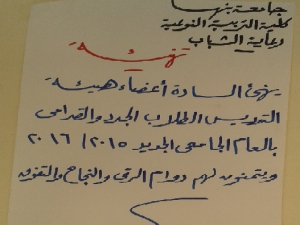 جامعة بنها
كلية التربية النوعية
رعاية الشباب
تهنئة
يهنئ السادة أعضاء هيئة
التدريس الطلاب الجدد والقدامى
بالعام الجامعى الجديد ٢٠١٥/٢٠١٦
ويتمنون لهم دوام الرقى والنجاح والتفوق